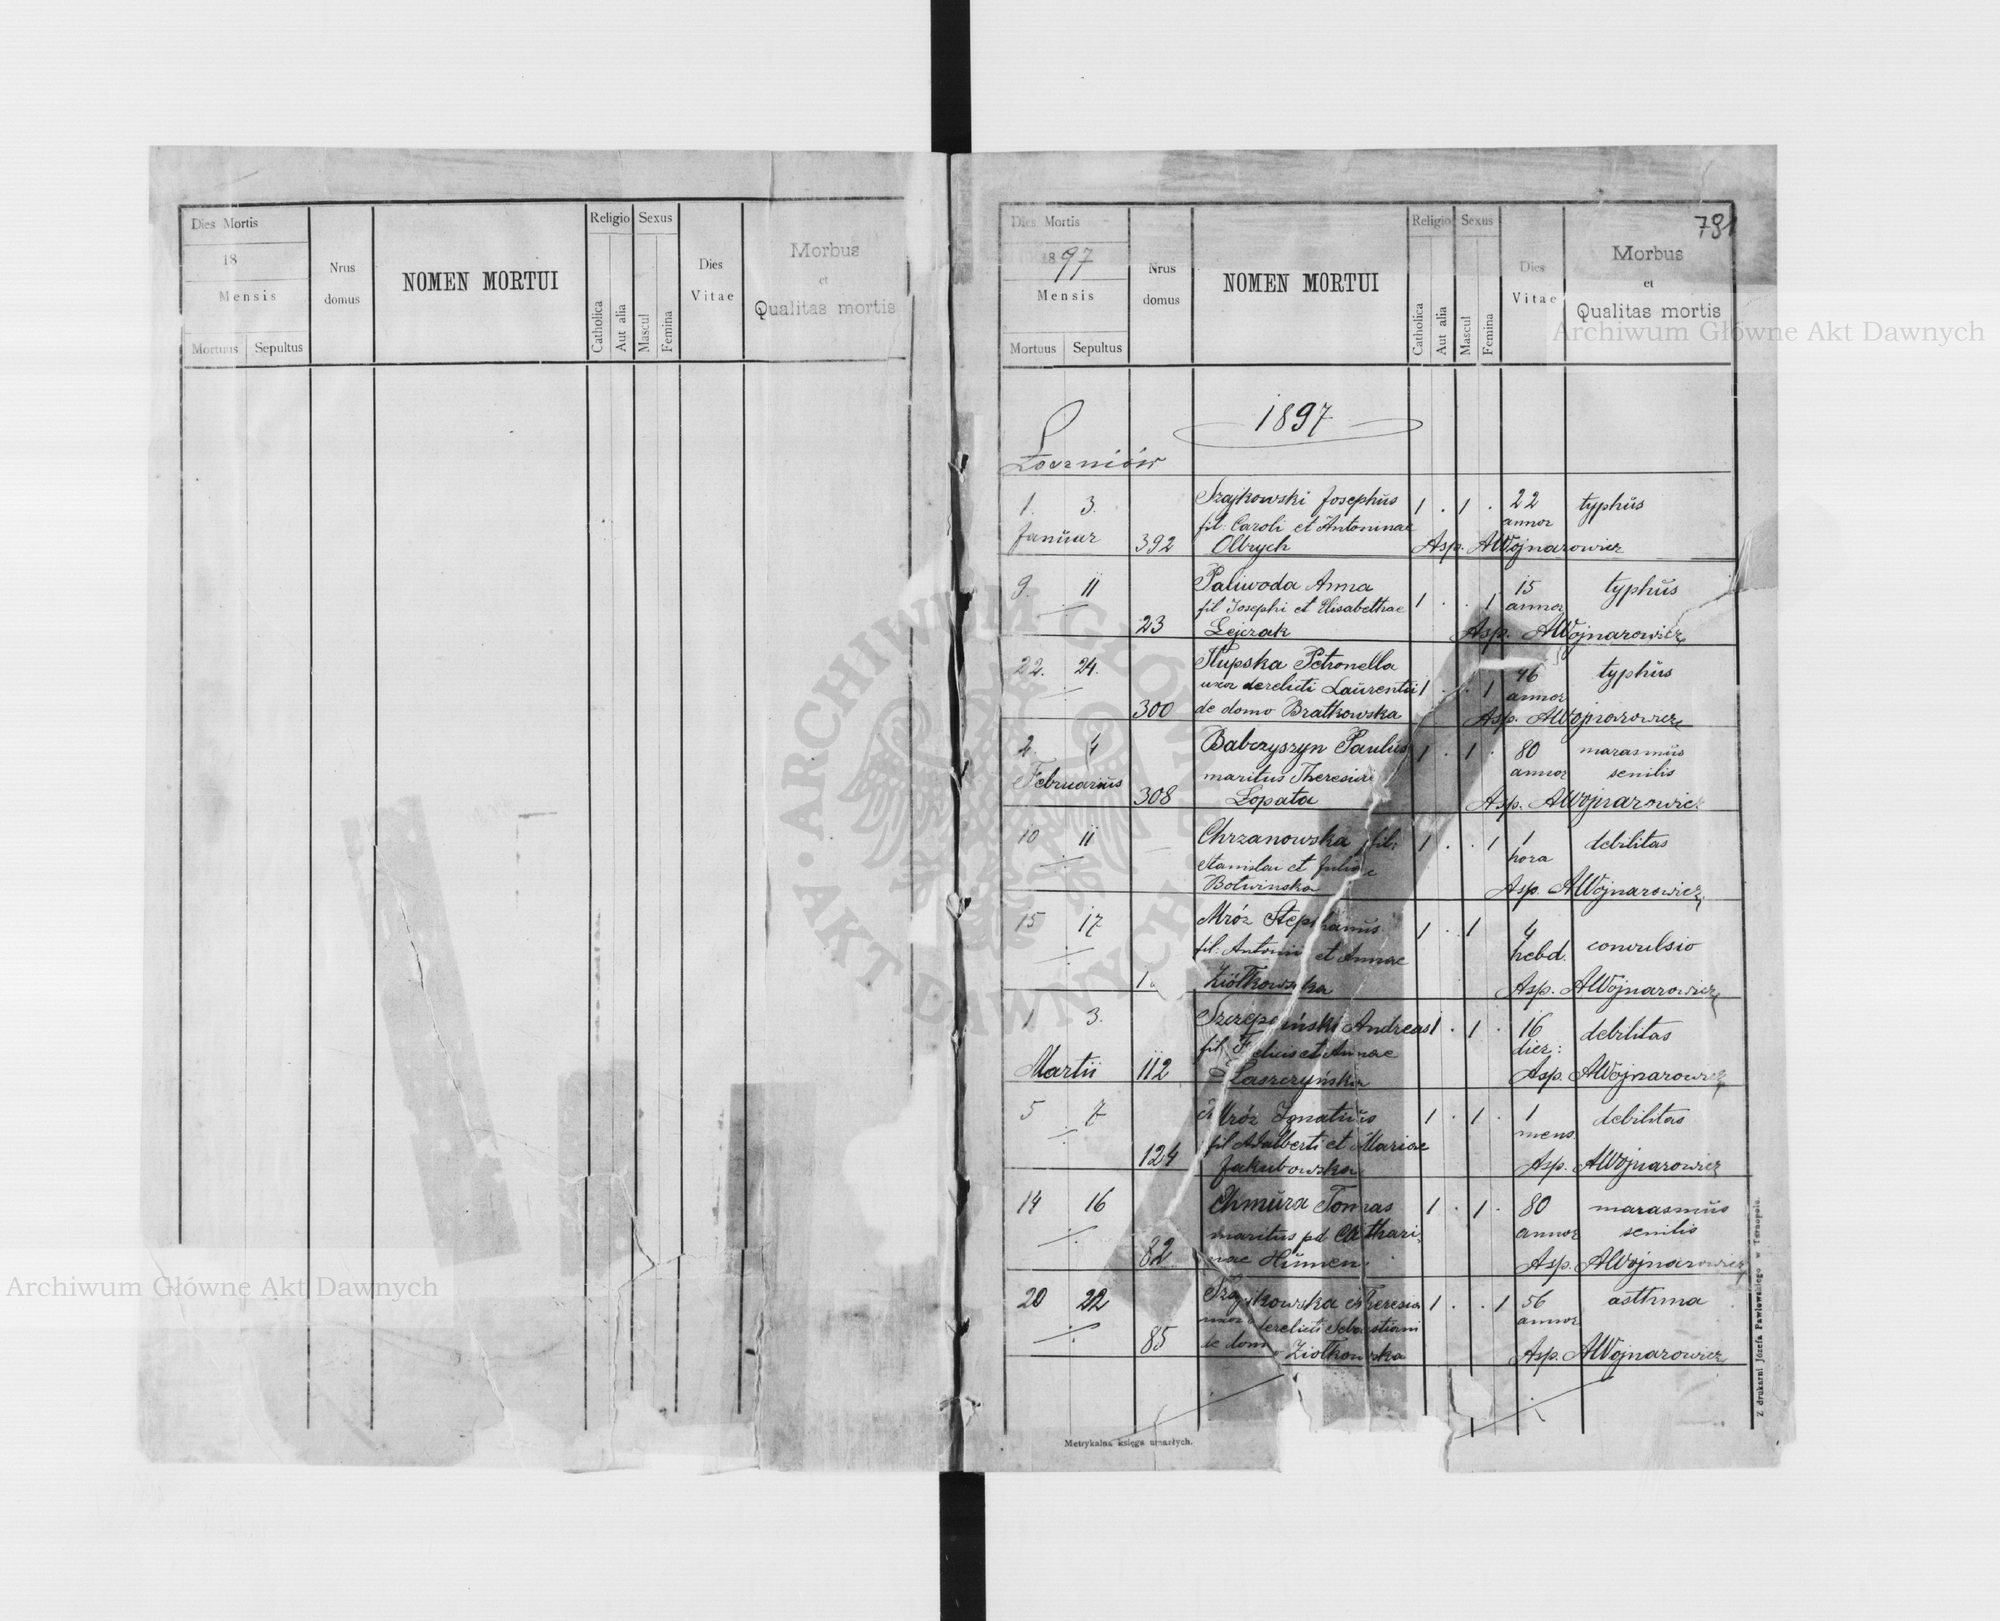 Dies Mortis
18
Mensis
Mortuus Sepultus
Nrus domus
NOMEN MORTUI
Religio
Catholica
Aut alia
Sexus
Mascul
Femina
Dies Vitae
Morbus
et
Qualitas mortis
Archiwum Główne Akt Dawnych
ARCHIWUM GŁÓWNE AKT DAWNYCH
791
Dies Mortis
1897
Mensis
Mortuus Sepultus
Nrus domus
NOMEN MORTUI
Religio
Catholica
Aut alia
Sexus
Mascul
Femina
Dies Vitae
Morbus
et
Qualitas mortis
Archiwum Główne Akt Dawnych
1897
Łoczniów
1. 3. Szajkowski Josephus 1 . 1 . 22 typhus
Januar fil: Caroli et Antoninae annor
392 Olbrych Asp. AWojnarowicz
9. 11 Paliwoda Anna 1 . . 1 15 typhus
fil Josephi et Elisabethae annor
23 Lejczak Asp. AWojnarowicz
22. 24. Słupska Petronella 1 . . 1 46 typhus
uxor derelicti Laurentii annor
300 de domo Bratkowska Asp. AWojnarowicz
2. 4 Babczyszyn Paulus 1 . 1 . 80 marasmus
Februarius maritus Theresiae annor senilis
308 Lopata Asp. AWojnarowicz
10 11 Chrzanowska fil: 1 . . 1 1 debilitas
Stanislai et Juliae hora
Botwinska Asp. AWojnarowicz
15 17 Mróz Stephanus 1 . 1 4
fil: Antonii et Annae hebd. convulsio
1 Ziółkowska Asp. AWojnarowicz
1 3. Szczepański Andreas 1 . 1 . 16 debilitas
fil Felicis et Annae dier:
Martii 112 Laszczyńska Asp. AWojnarowicz
5 7 Mróz Ignatius 1 . 1 . 1 debilitas
fil Adalberti et Mariae mens.
124 Jakubowska Asp. AWojnarowicz
14 16 Chmura Tomas 1 . 1 . 80 marasmus
maritus pd Cathari- annor senilis
82 nae Humen. Asp. AWojnarowicz
20 22 Szajkowska Theresia 1 . . 1 56 asthma
uxor derelicti Sebastiani annor
85 de domo Ziołkowska Asp. AWojnarowicz
Metrykalna księga umarłych.
Z drukarni Józefa Pawłowskiego w Tarnopolu.